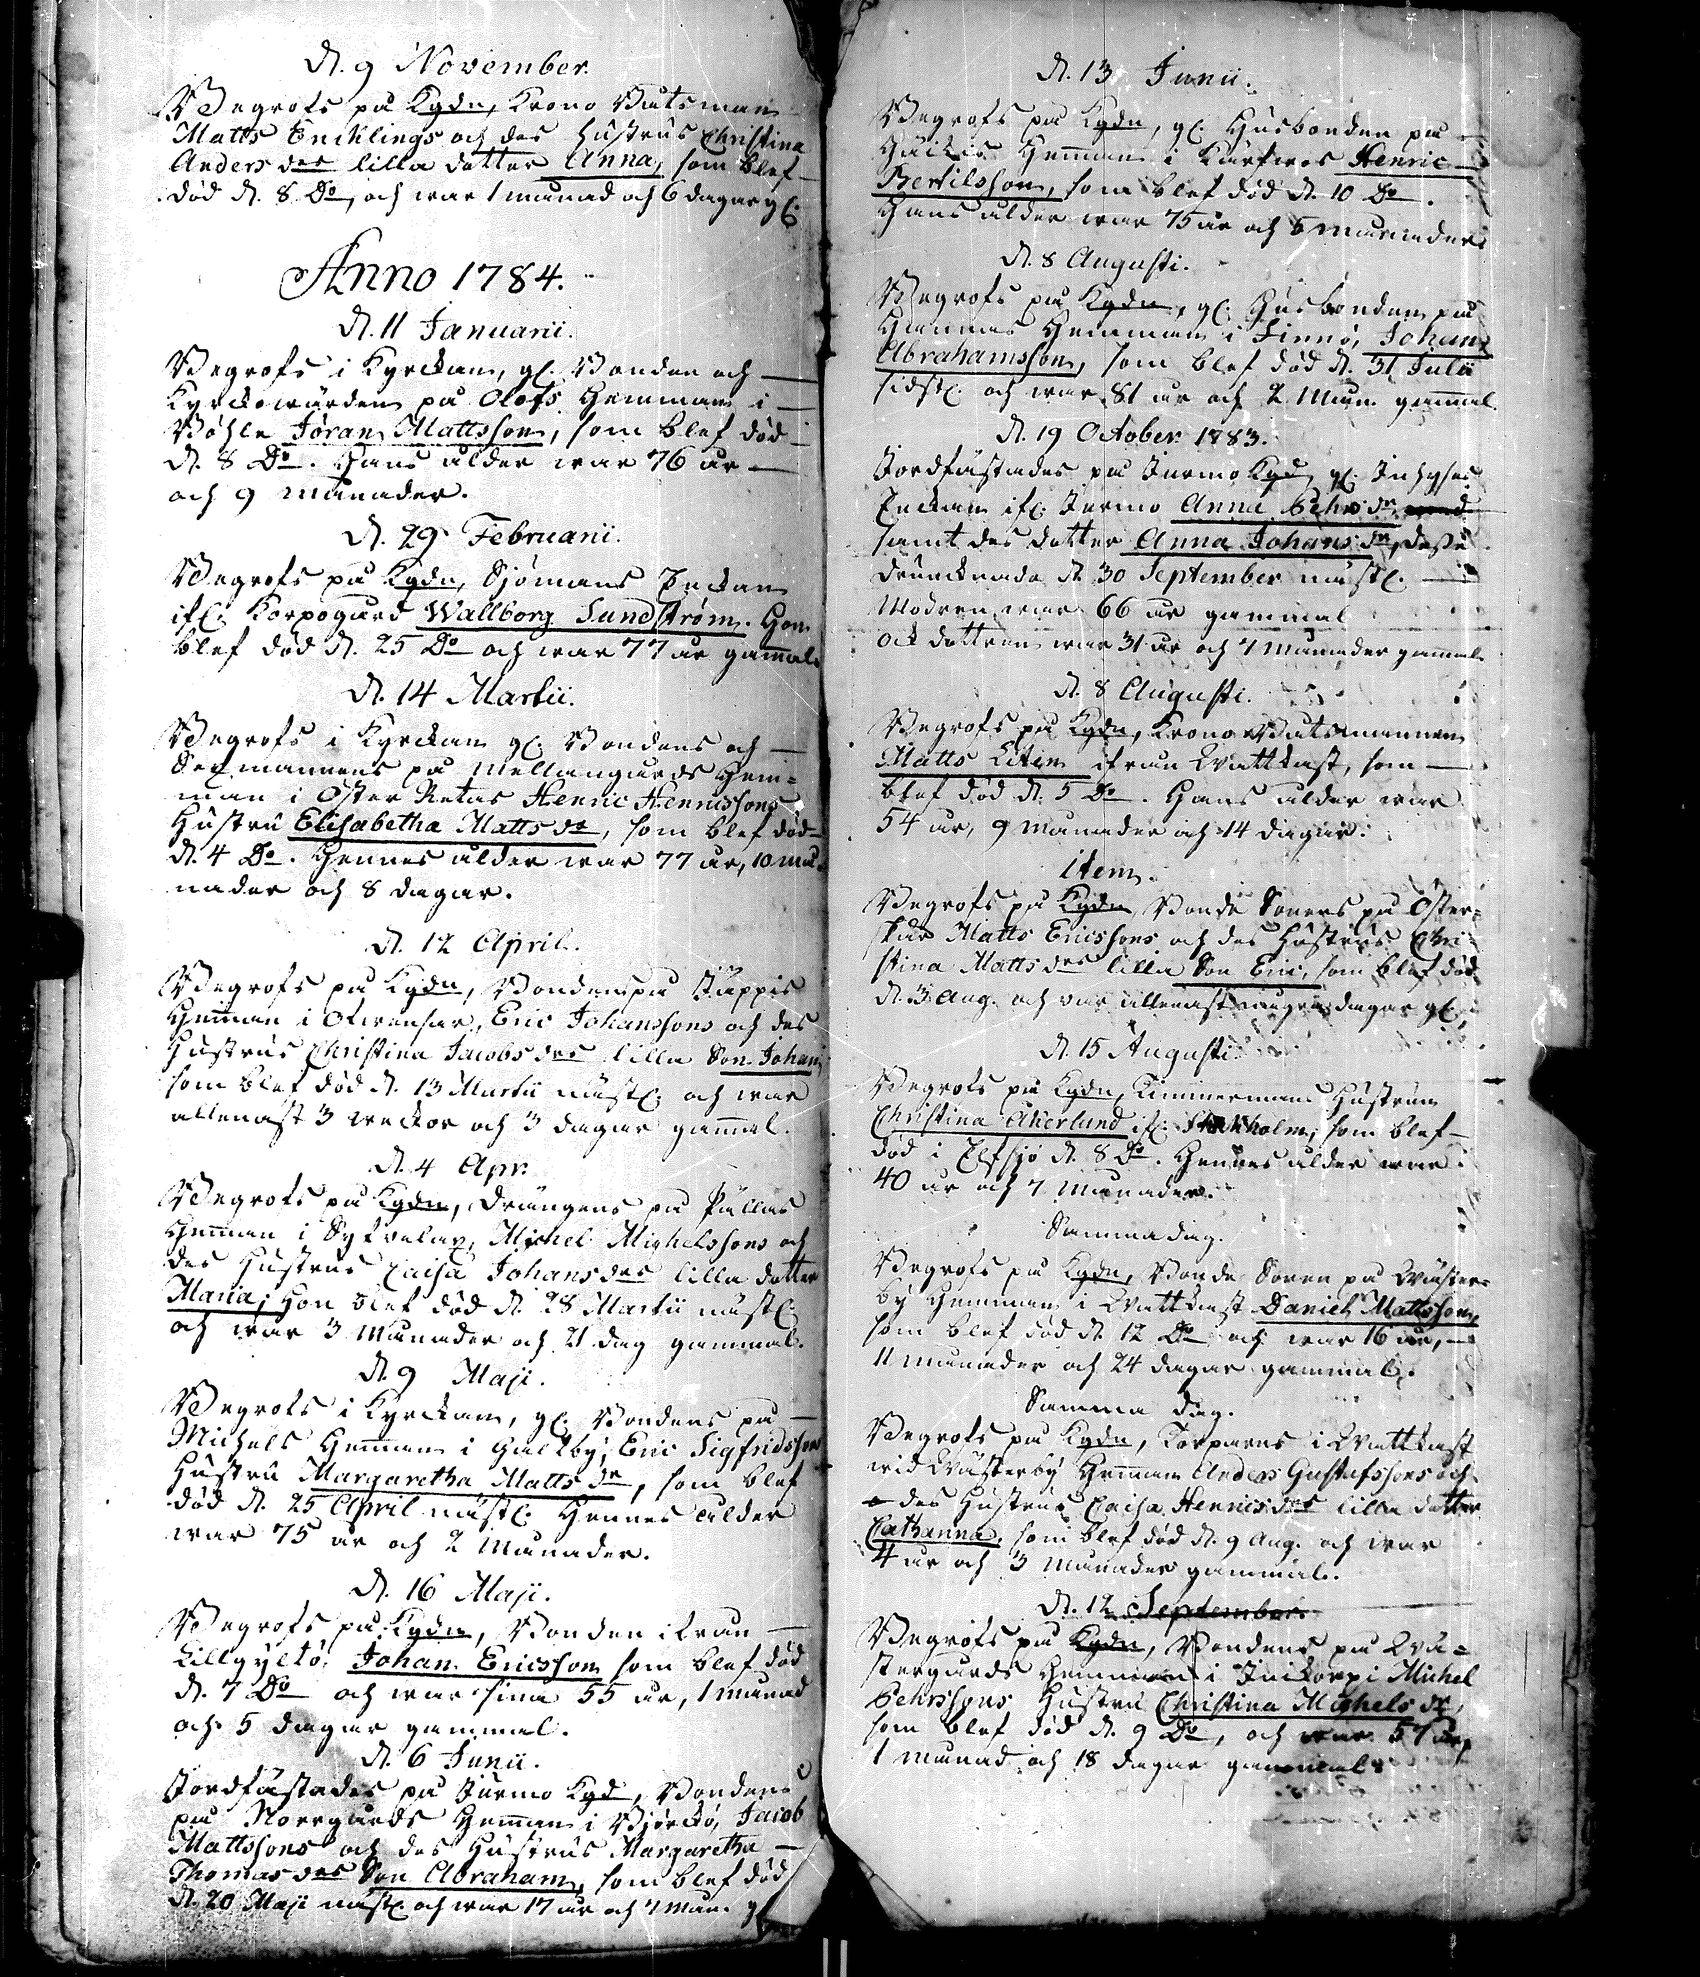 D. 9 November.
Begrofs på Kgdn, Krono Båtsman
Matts Encklings och des Hustrus Christina
Anders drs lilla dotter Anna, som blef
död d. 8 Do, och war 1 månad och 6 dagar gl.
Anno 1784.
D. 11 Januarii.
Begrofs i Kyrckan, gl. Bonden och
Kyrckowärden på Olofs Hemman i
Böhle Jöran Mattsson, som blef död
d. 8 Do. Hans ålder war 76 år
och 9 månader.
D. 29 Februarii.
Begrofs på Kgdn, Sjömans Enckan
ifl. Korpogård Wallborg Sundström. Hon
blef död d. 25 Do och war 77 år gammal.
D. 14 Martii.
Begrofs i Kyrckan gl. Bondens och
Sexmannens på Mellangårds Hem-
man i Öster Retais Henric Henricssons
Hustru Elisabetha Matts dr, som blef död
d. 4 Do. Hennes ålder war 77 år, 10 må-
nader och 8 dagar.
D. 12 April.
Begrofs på Kgdn, Bondens på Stäppis
Hemman i Ofwensar, Eric Johanssons och des
Hustrus Christina Jacobs drs lilla Son Johan,
som blef död d. 13 Martii nästl. och war
allenast 3 weckor och 3 dagar gammal.
D. 4 Apr.
Begrofs på Kgdn, Drängens på Pällas
Hemman i Sykvalax, Michel Michelssons och
des Hustrus Caisa Johans drs lilla dotter
Maria; Hon blef död d. 28 Martii nästl.
och war 3 månader och 21 dag gammal.
D. 9 Maji.
Begrofs i Kyrckan, gl. Bondens på
Michels Hemman i Galtby, Eric Sigfridsson
Hustru Margaretha Matts dr, som blef
död d. 25 April nästl. Hennes ålder
war 75 år och 2 månader.
D. 16 Maji.
Begrofs på Kgdn, Bonden ifrån
Lillgyltö, Johan Ericsson som blef död
d. 7 Do och war sina 55 år, 1 månad
och 5 dagar gammal.
D. 6 Junii.
Jordfästades på Jurmo Kgd, Bondens
på Norrgårds Hemman i Björckö, Jacob
Mattssons och des Hustrus Margaretha
Thomas drs Son Abraham, som blef död
d. 20 Maji nästl. och war 17 år och 7 mån. g
D. 13 Junii.
Begrofs på Kgdn, gl. Husbonden på
Häikis Hemman i Kärfwes Henric
Bertilsson, som blef död d. 10 Do.
Hans ålder war 75 år och 5 månader.
D. 8 Augusti.
Begrofs på Kgdn, gl. Husbonden på
Hannas Hemman i Finnö, Johan
Abrahamsson, som blef död d. 31 Julii
sidstl. och war 81 år och 2 mån. gammal.
D. 19 October 1783.
Jordfästades på Jurmo Kgd gl. Inhyses
Enckan ifl. Jurmo Anna Pehrs dr
samt des dotter Anna Johans dr, desse
drunknade d. 30 September nästl.
Modren war 66 år gammal
och dottren war 31 år och 7 månader gammal.
D. 8 Augusti.
Begrofs på Kgdn, Krono Båtsmannen
Matts Liten ifrån Wattkast, som
blef död d. 5 Do. Hans ålder war
54 år, 9 månader och 14 dagar.
item.
Begrofs på Kgdn Bonde Sonens på Öster-
skär Matts Ericssons och des Hustrus Chri-
stina Matts drs lilla Son Eric, som blef död
d. 3 Aug. och war allenast några dagar gl.
D. 15 Augusti.
Begrofs på Kgdn, Timmermans Hustrun
Christina Åkerlund ifl. Stockholm, som blef
död i Elfsjö d. 8 Do. Hennes ålder war
40 år och 7 månader.
Samma dag.
Begrofs på Kgdn, Bonde Sonen på Wäster-
by Hemman i Wattkast Daniel Mattsson,
som blef död d. 12 Do och war 16 år,
11 månader och 24 dagar gammal.
Samma dag.
Begrofs på Kgdn, Torparens i Wattkast
wid Wästerby Hemman Anders Gustafssons och
des Hustrus Caisa Henrics drs lilla dotter
Catharina, som blef död d. 9 Aug. och war
4 år och 3 månader gammal.
D. 12 September.
Begrofs på Kgdn, Bondens på Wä-
stergårds Hemman i Rickorpi Michel
Pehrssons Hustru Christina Michels dr,
som blef död d. 9 Do, och war 57 år,
1 månad och 18 dagar gammal.